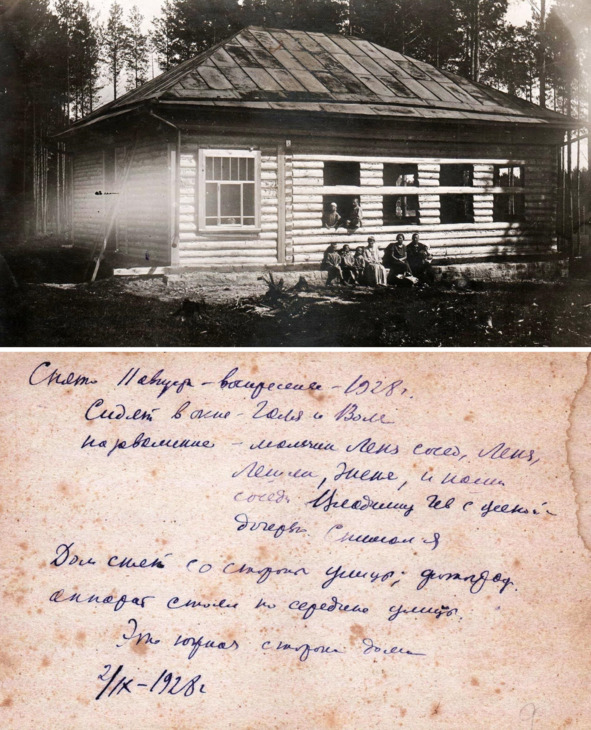 Снято 11 августа - воскресение - 1928 г.
Сидят в окне - Галя и Воля
на завалинке - мальчик Леня сосед, Леня,
и наши
соседи Владимир с женой
дочерью Снимал я
Дом снят со стороны улицы, фотограф.
аппарат стоял по середине улицы.
Это южная сторона дома
2/IX - 1928 г